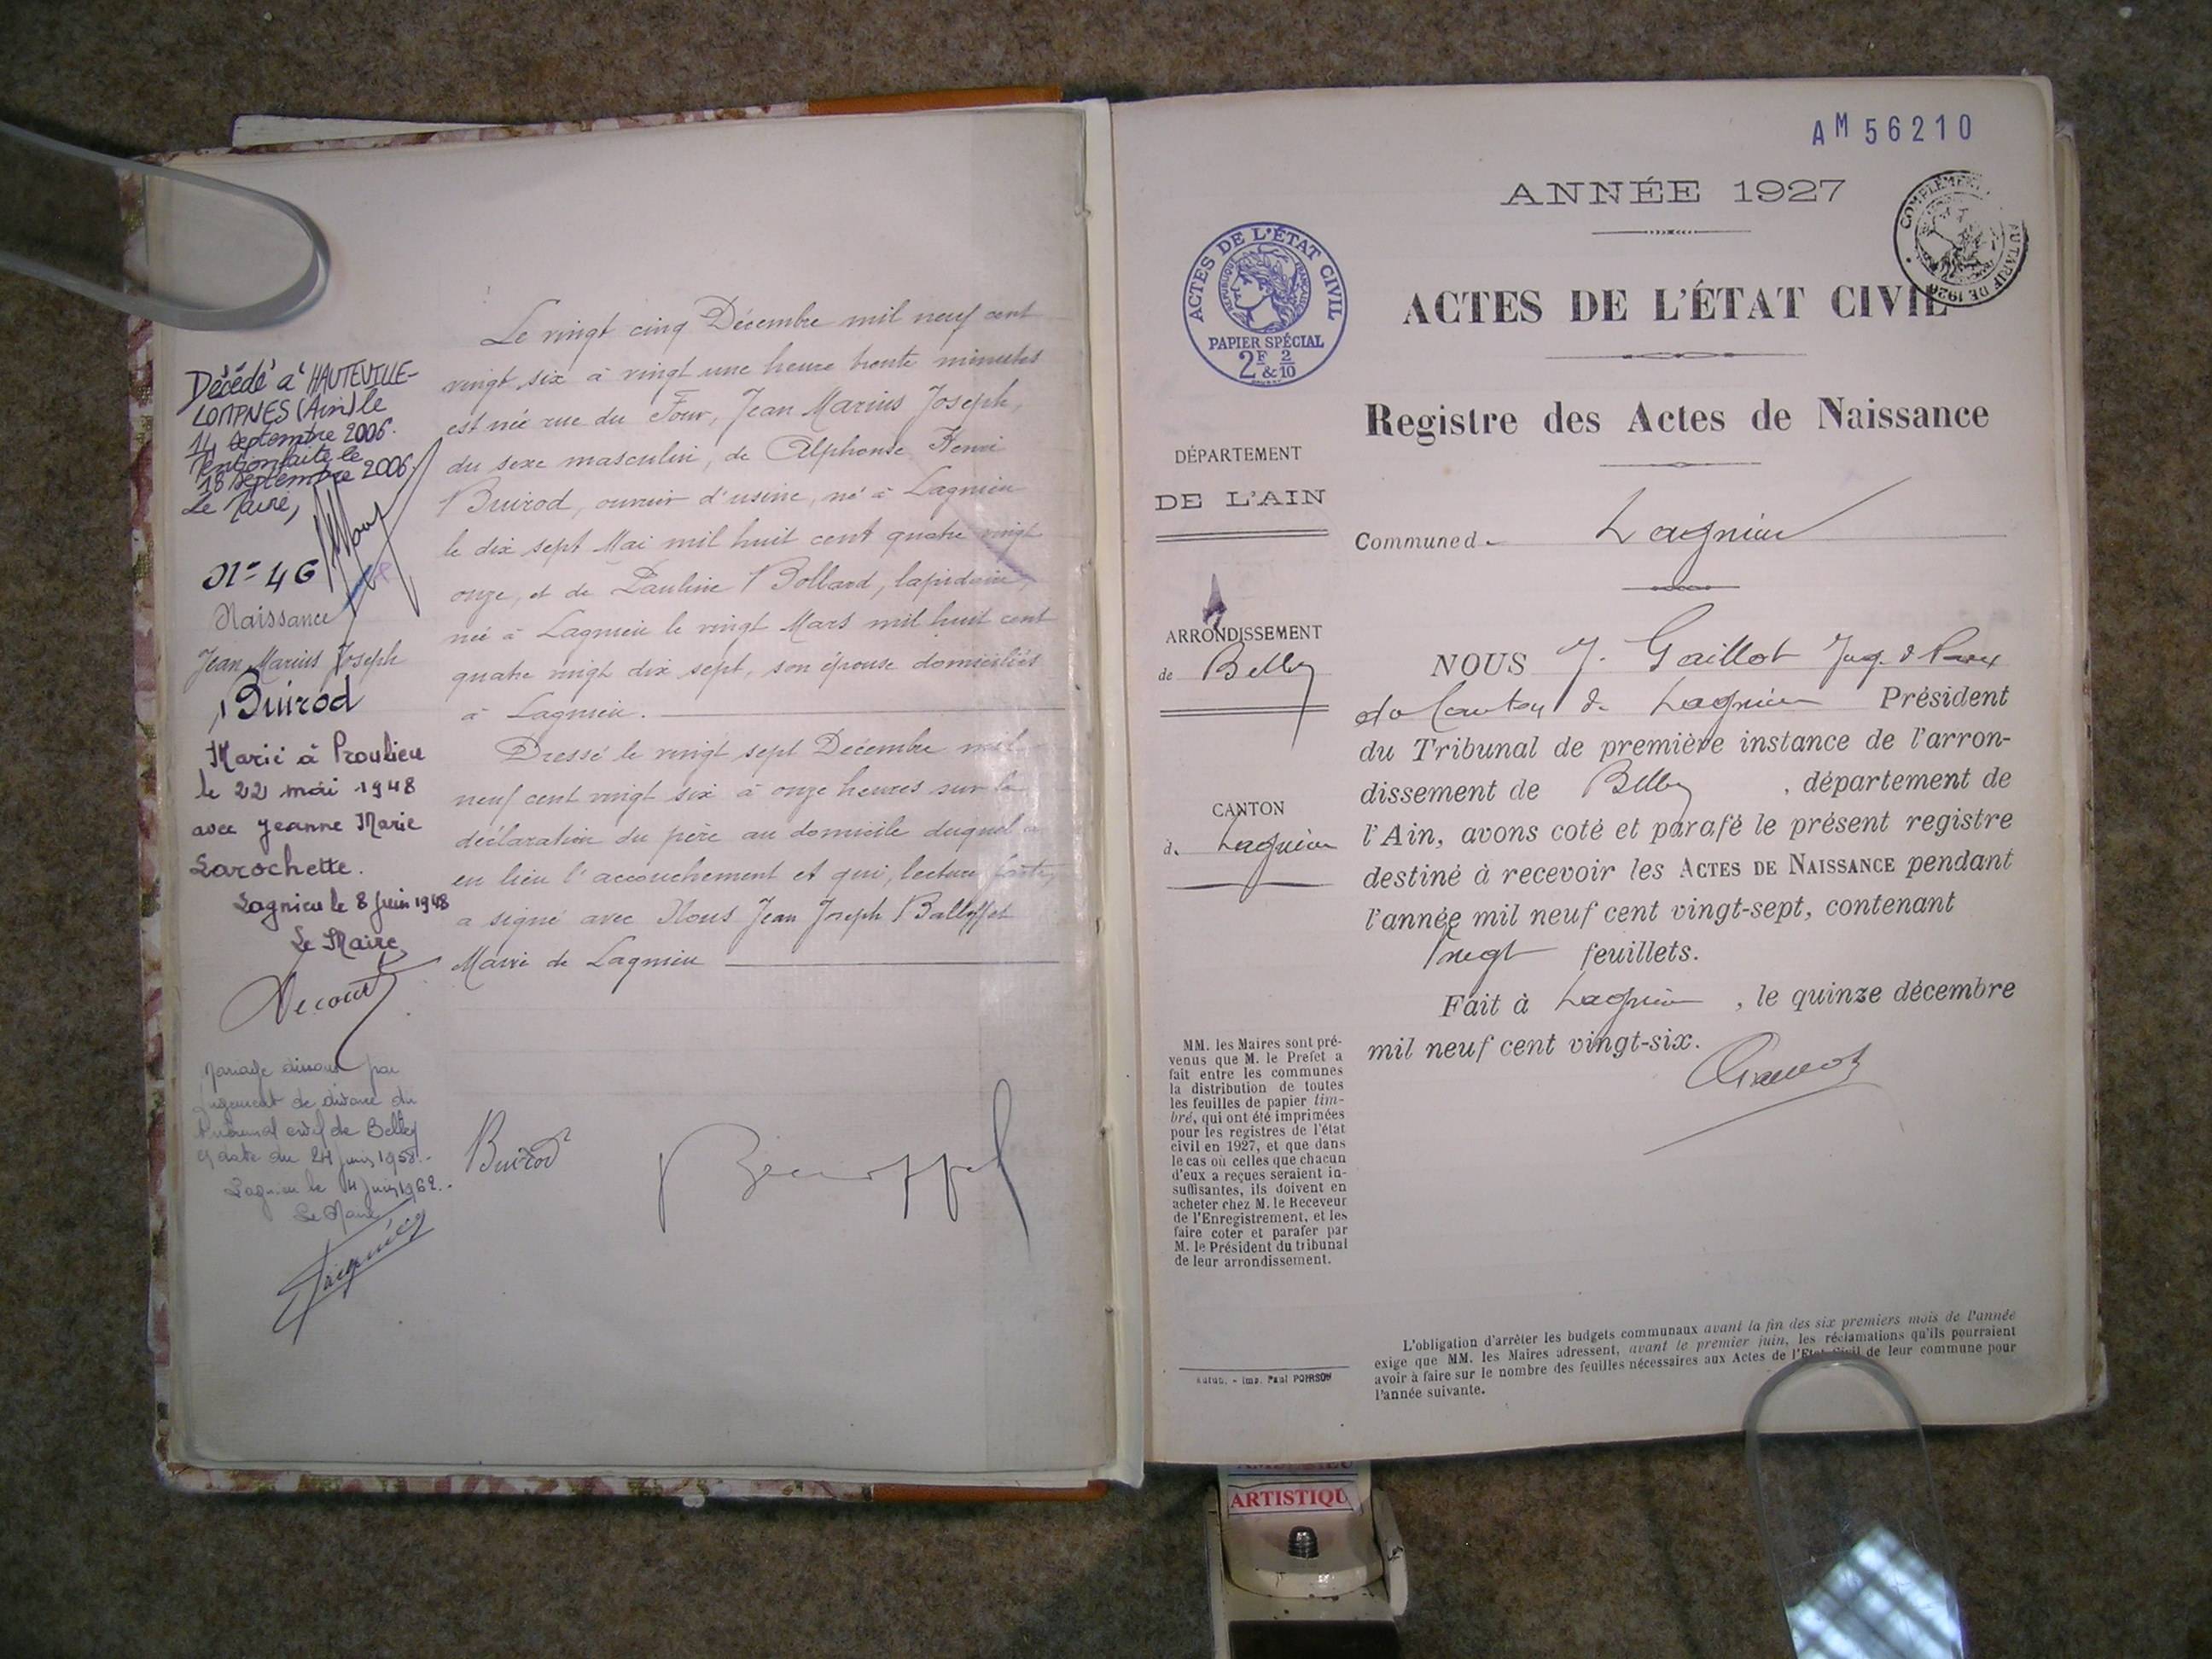 Décédé à HAUTEVILLE-
LOMPNES (Ain) le
14 septembre 2006.
Mention faite le
18 septembre 2006.
Le Maire,
N° 46
Naissance
Jean Marius Joseph
Buirod
Marié à Proulieu
le 22 mai 1948
avec Jeanne Marie
Larochette.
Lagnieu le 8 Juin 1948
Le Maire
Mariage dissous par
jugement de divorce du
tribunal civil de Belley
en date du 24 juin 1958.
Lagnieu le 4 juin 1962.
Le Maire
Le vingt cinq Décembre mil neuf cent
vingt six à vingt une heure trente minutes
est née rue du Four, Jean Marius Joseph,
du sexe masculin, de Alphonse Henri
Buirod, ouvrier d'usine, né à Lagnieu
le dix sept Mai mil huit cent quatre vingt
onze, et de Pauline Bollard, lapidaire,
née à Lagnieu le vingt Mars mil huit cent
quatre vingt dix sept, son épouse domiciliés
à Lagnieu.
Dressé le vingt sept Décembre mil
neuf cent vingt six à onze heures sur la
déclaration du père au domicile duquel a
eu lieu l'accouchement et qui, lecture faite,
a signé avec Nous Jean Joseph Balloffet
Maire de Lagnieu
Buirod
AM 56210
ANNÉE 1927
COMPLÉMENT AU TARIF DE 1926
ACTES DE L'ÉTAT CIVIL
RÉPUBLIQUE FRANÇAISE
PAPIER SPÉCIAL
2F & 2/10
ACTES DE L'ÉTAT CIVIL
Registre des Actes de Naissance
DÉPARTEMENT
DE L'AIN
Commune d. Lagnieu
ARRONDISSEMENT
de Belley
CANTON
d. Lagnieu
NOUS J. Gaillot Juge de Paix
du Canton de Lagnieu Président
du Tribunal de première instance de l'arron-
dissement de Belley, département de
l'Ain, avons coté et parafé le présent registre
destiné à recevoir les ACTES DE NAISSANCE pendant
l'année mil neuf cent vingt-sept, contenant
vingt feuillets.
Fait à Lagnieu, le quinze décembre
mil neuf cent vingt-six.
MM. les Maires sont pré-
venus que M. le Prefet a
fait entre les communes
la distribution de toutes
les feuilles de papier tim-
bré, qui ont été imprimées
pour les registres de l'état
civil en 1927, et que dans
le cas où celles que chacun
d'eux a reçues seraient in-
suffisantes, ils doivent en
acheter chez M. le Receveur
de l'Enregistrement, et les
faire coter et parafer par
M. le Président du tribunal
de leur arrondissement.
Autun. - Imp. Paul POIRSON
L'obligation d'arrêter les budgets communaux avant la fin des six premiers mois de l'année
exige que MM. les Maires adressent, avant le premier juin, les réclamations qu'ils pourraient
avoir à faire sur le nombre des feuilles nécessaires aux Actes de l'Etat Civil de leur commune pour
l'année suivante.
ARTISTIQU